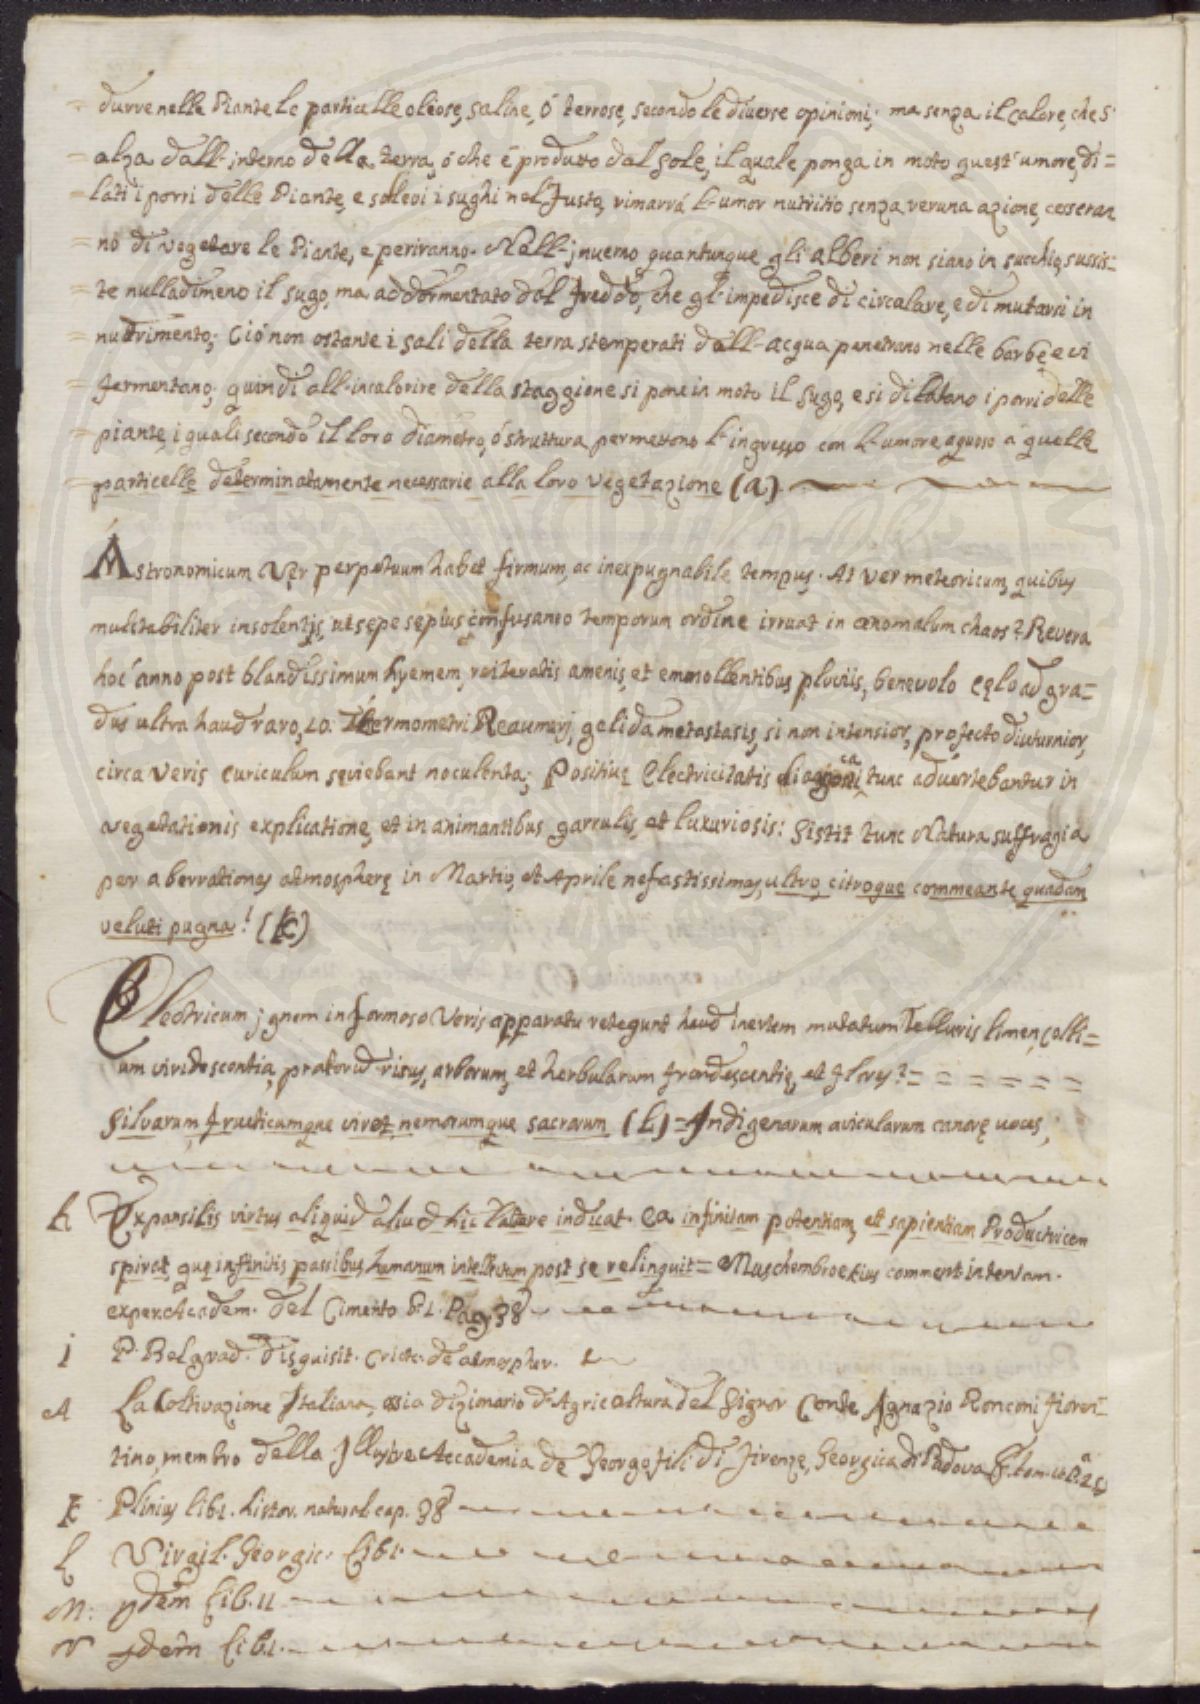 = durre nelle Piante le particelle oleose, saline, ó terrose, secondo le diverse opinioni; ma senza il calore, che s'
= alza dall' interno della terra, ó che é produtto dal sole, il quale ponga in moto quest' umore, di=
= lati i porri delle Piante, e sollevi i sughi nel fusto, rimarrá l' umor nutritivo senza veruna azione, cesseran
= no di vegetare le Piante, e periranno. Nell' inuerno quantunque gli alberi non siano in succhio, sussis=
= te nulladimeno il sugo, ma addormentato dal freddo, che gl' impedisce di circolare, e di mutarsi in
= nutrimento; Ció non ostante i sali della terra stemperati dall' acqua penetrano nelle barbe, e vi
= fermentano; quindi all' incalorire della staggione si pone in moto il sugo, e si dilatano i porri delle
= piante, i quali secondo il loro diametro, ó struttura permettono l' ingresso con l' umore aquoso á quelle
= particelle determinatamente necessarie alla loro vegetazione (a)
Astronomicum Ver perpetuum habet firmum, ac inexpugnabile tempus. At ver meteoricum, quibus
mulctabiliter insolentijs, ut sępe sępius confusaneo temporum ordine irruat in ænomalum chaos? Revera
hoc anno post blandissimum hyemem, reiteratis amenis, et emmollentibus pluviis, benevolo cęlo ad gra=
dus ultra haud raro, 20. Thermometri Reaumurj, gelida metastasis, si non intensior, profecto diuturnior,
circa Veris curiculum sęviebant noculenta; Positivę Electricitatis diagnoni ca tunc advertebantur in
vegetationis explicatione, et in animantibus garrulis, et luxuriosis: Sistit tunc Natura suffragia
per aberrationes atmospherę in Martio, et Aprile nefastissimas, ultro, citroque commeante quadam
veluti pugna! (K)
Electricum ignem in formoso Veris apparatu retegunt haud inertem mutatum Telluris limen, colli=
um viridescentia, pratorum risus, arborum, et herbularum frondescentię, et flores? = = = = = =
Silvarum, fruticumque viret, nemorumque sacrarum (L) = Indigenarum avicularum canorę voces,
h Expansilis virtus aliquid aliud hic latere indicat. Ea infinitam potentiam, et sapientiam Productricem
spirat, quę infinitis passibus humanum intellectum post se relinquit = Muschembroekius comment. in tentam.
exper. Academ. del Cimento P. 1. Pag. 38
i P. Belgrad. disquisit. crict. de atmosphær.
A La Coltivazione Italiana, ossia dizionario d' Agricoltura del Signor Conte Ignazio Ronconi fioren=
tino, membro della Illustre Accademia de Georgofili di Firenze, Georgica di Padova &. tom. 10 P.a 25
K Plinius lib. 2. histor. natural. cap. 38
L Virgil. Georgic. Lib. 2.
M: ydem Lib. II
N ydem Lib. 2.